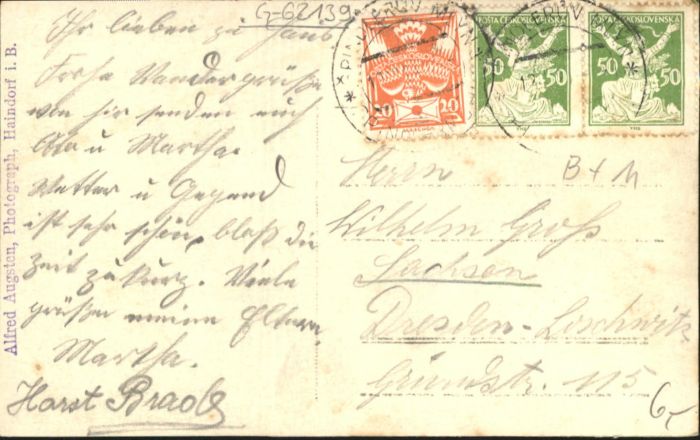 G-62139
Ihr lieben zu Haus
Frohe Wandergrüße
von hir senden euch
u Martha.
Wetter u Gegend
ist sehr schön, bloß die
Zeit zu kurz. Viele
grüße meine Eltern.
Martha.
Horst
Alfred Augsten, Photograph, Haindorf i. B.
20 20
POŠTA ČESKOSLOVENSKÁ
50 50
POŠTA ČESKOSLOVENSKÁ
50 50
B+M
Herrn
Wilhelm Groß
Sachsen
Dresden-Loschwitz
Grundstr. 115
6,-